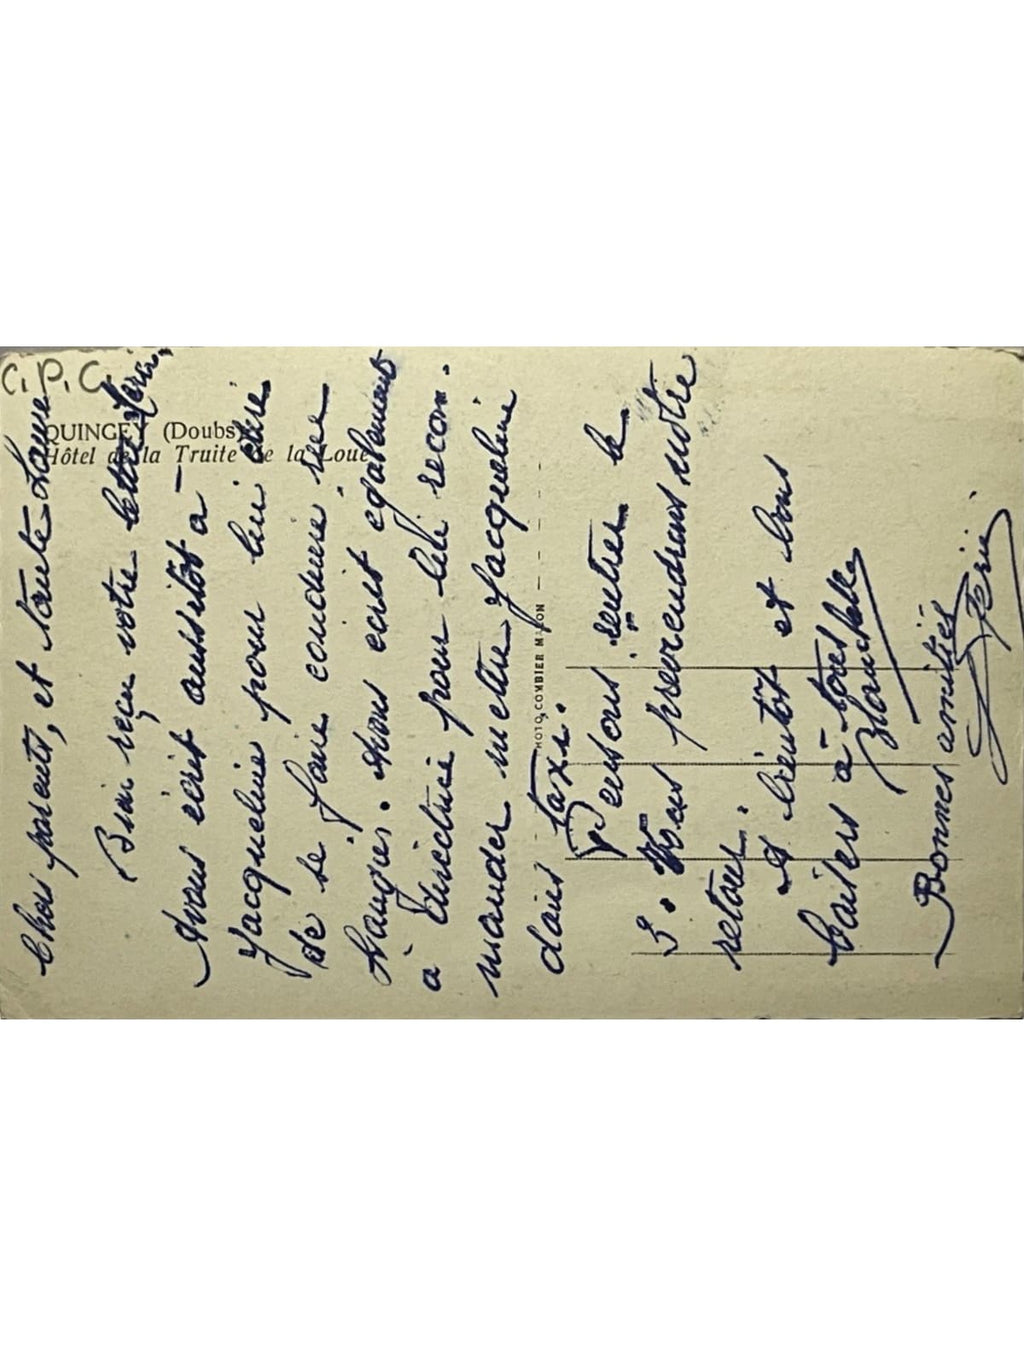 C.P.C.
QUINGEY (Doubs)
Hôtel de la Truite de la Loue
Chers parents, et tante Laure
Bien reçu votre lettre hier,
Avons écrit aussitôt à
Jacqueline pour lui dire
de se faire conduire rue
Vaugier. Avons écrit également
à Directrice pour lui recom-
mander mettre Jacqueline
dans taxi.
Pensons rentrer le
3. Vous preverendrons notre
retour.
A bientôt et bons
baisers à tous
Bonnes amitiés
PHOTO COMBIER MACON